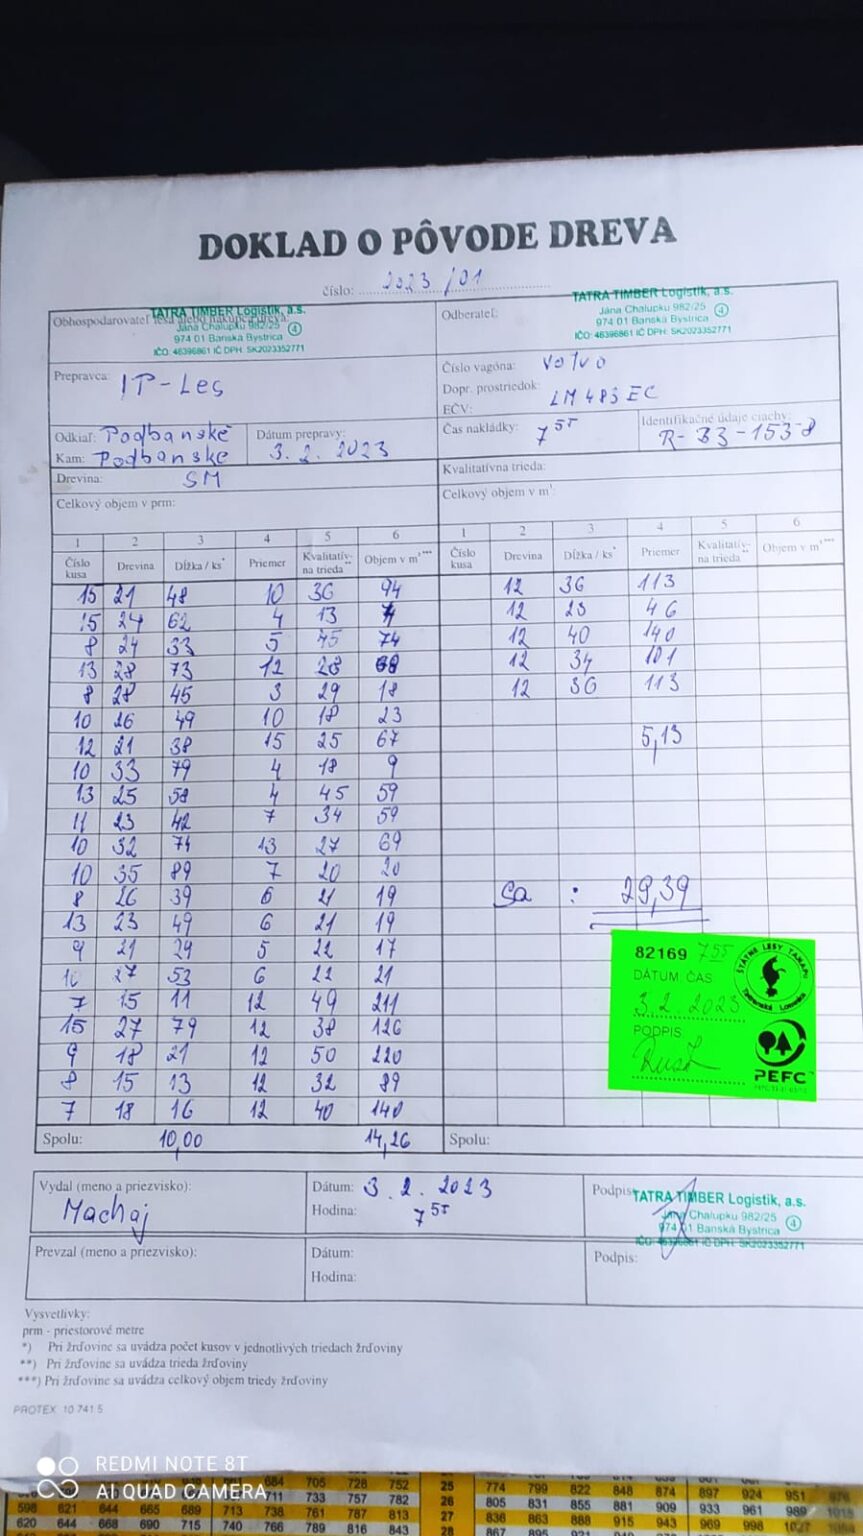 DOKLAD O PÔVODE DREVA
číslo: 2023/01
Obhospodarovateľ lesa alebo nákupca dreva:
TATRA TIMBER Logistik, a.s.
Jána Chalupku 982/25
974 01 Banská Bystrica
4
IČO: 46396861 IČ DPH: SK2023352771
Odberateľ:
TATRA TIMBER Logistik, a.s.
Jána Chalupku 982/25
974 01 Banská Bystrica
4
IČO: 46396861 IČ DPH: SK2023352771
Prepravca: IP-Les
Číslo vagóna: Volvo
Dopr. prostriedok:
EČV: LM483EC
Odkiaľ: Podbanské
Kam: Podbanske
Dátum prepravy: 3.2.2023
Čas nakládky: 7 55
Identifikačné údaje ciachy: R-B3-153-8
Drevina: SM
Kvalitatívna trieda:
Celkový objem v prm:
Celkový objem v m³:
1 2 3 4 5 6 1 2 3 4 5 6
Číslo kusa Drevina Dĺžka / ks* Priemer Kvalitatív- na trieda** Objem v m³*** Číslo kusa Drevina Dĺžka / ks* Priemer Kvalitatív- na trieda** Objem v m³***
15 21 48 10 36 94 12 36 113
15 24 62 4 13 7 12 23 46
8 24 33 5 45 74 12 40 140
13 28 73 12 28 68 12 34 101
8 28 45 3 29 18 12 36 113
10 26 49 10 18 23
12 21 38 15 25 67 5,13
10 33 79 4 18 9
13 25 58 4 45 59
11 23 42 7 34 59
10 32 74 13 27 69
10 35 89 7 20 20
8 26 39 6 21 19 Ca : 29,39
13 23 49 6 21 19
9 21 29 5 22 17
10 27 53 6 22 21
7 15 11 12 49 211
15 27 79 12 38 126
9 18 21 12 50 220
8 15 13 12 32 89
7 18 16 12 40 140
82169 755
DÁTUM ČAS
3.2.2023
PODPIS
ŠTÁTNE LESY TANAPU
Tatranská Lomnica
PEFC
Spolu: 10,00 14,26 Spolu:
Vydal (meno a priezvisko):
Machaj
Dátum: 3.2.2023
Hodina: 7 55
Podpis:
TATRA TIMBER Logistik, a.s.
Jána Chalupku 982/25
974 01 Banská Bystrica
4
IČO: 46396861 IČ DPH: SK2023352771
Prevzal (meno a priezvisko):
Dátum:
Hodina:
Podpis:
Vysvetlivky:
prm - priestorové metre
*) Pri žrďovine sa uvádza počet kusov v jednotlivých triedach žrďoviny
**) Pri žrďovine sa uvádza trieda žrďoviny
***) Pri žrďovine sa uvádza celkový objem triedy žrďoviny
PROTEX 10 741 5
REDMI NOTE 8T
AI QUAD CAMERA
684 705 728 752 25 774 799 822 848 874 897 924 951
711 733 757 782 26 805 831 855 881 909 933 961 989
598 621 644 665 689 713 738 761 787 813 27 836 863 888 915 943 969 998
620 644 668 690 715 740 766 789 816 843 28 867 895 921